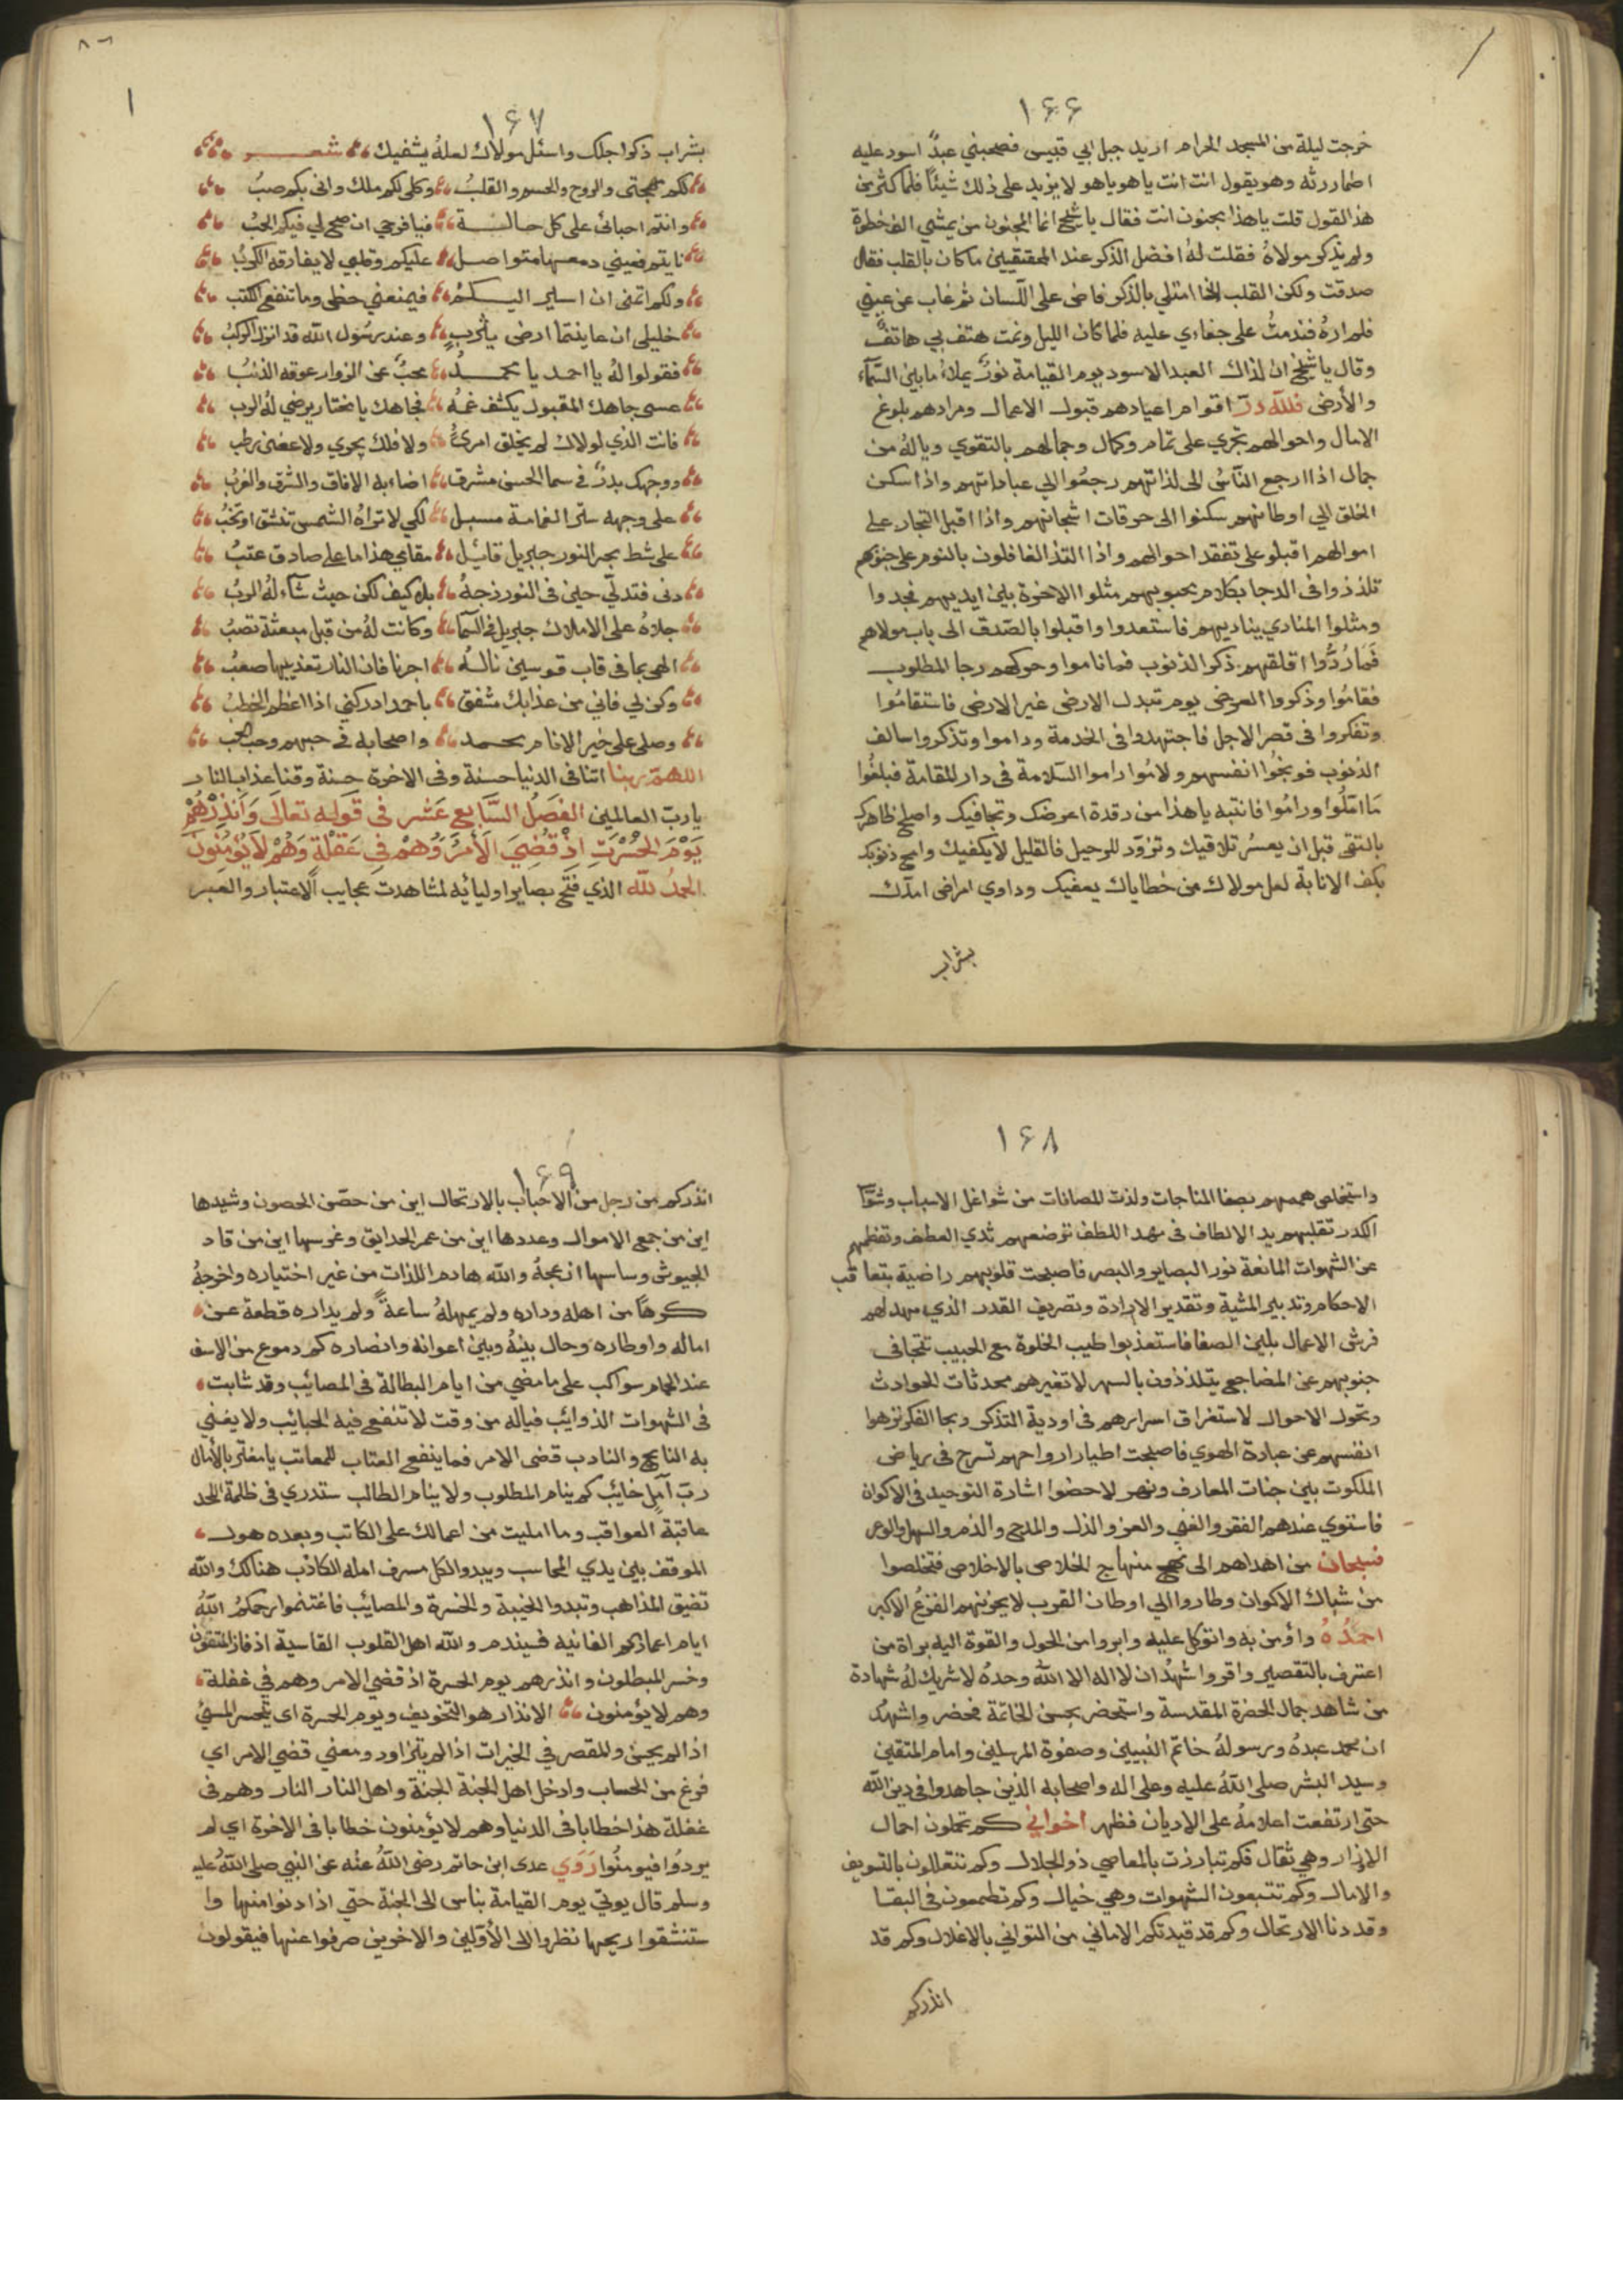 ١٦٦
خرجت ليلة من المسجد الحرام اريد جبل ابي قبيس فصحبني عبدٌ اسود عليه
اطمار رثه وهو يقول انت انت يا هو يا هو لا يزيد على ذلك شيئًا فلما كثر من
هذ القول قلت يا هذا مجنون انت فقال يا شيخ انما المجنون من يمشي الف خطوة
ولم يذكر مولاهُ فقلت لهُ افضل الذكر عند المحققين ما كان بالقلب فقال
صدقت ولكن القلب اذا امتلي بالذكر فاض على اللسان ثم غاب عن عيني
فلم ارهُ فندمتُ على جفاءي عليه فلما كان الليل ونمت هتف بي هاتفٌ
وقال يا شيخ ان لذاك العبد الاسود يوم القيامة نورٌ يملاءُ ما بين السماء
والأرض فلله درّ اقوام اعيادهم قبول الاعمال ومرادهم بلوغ
الامال واحوالهم تجري على تمام وكمال وجمالهم بالتقوي ويا لهُ من
جمال اذا ارجع الناسُ الى لذاتهم رجعُوا الي عباداتهم واذا سكن
الخلق الي اوطانهم سكنوا الى حرقات اشجانهم واذا اقبل التجار على
اموالهم اقبلو على تفقد احوالهم واذا التذ الغافلون بالنوم على جنوبهم
تلذذوا في الدجا بكلام محبوبهم مثلوا الاخرة بين ايديهم فجدوا
ومثلوا المنادي يناديهم فاستعدوا واقبلوا بالصدق الى باب مولاهم
فَمَا رُدُّوا اقلقهم ذكر الذنوب فما ناموا وحركهم رجا المطلوب
فقامُوا وذكروا العرض يوم تبدل الارض غير الارض فاستقامُوا
وتفكروا في قصر الاجل فاجتهدوا في الخدمة وداموا وتذكروا سالف
الذنوب فوبخُوا انفسهم ولامُوا راموا السلامة في دار المقامة فبلغُوا
مَا امّلُوا ورامُوا فانتبه يا هذا من رقدة اعرضك وتجافيك واصلح ظاهرك
بالتقى قبل ان يعسُر تلاقيك وتزوّد للرحيل فالقليل لا يكفيك وامح ذنوبك
بكف الانابة لعل مولاك من خطاياك يعفيك وداوي امراض املّك
بشراب
١٦٧
بشراب ذكر اجلك واسئل مولاك لعلهُ يشفيك شعر
لكم مهجتي والروح والجسم والقلبُ وكلي لكم ملك واني بكم صبُ
وانتم احبائي على كل حالة فيا فرحي ان صح لي فيكم الحبُ
نايتم فعيني دمعها متواصل عليكم وقلبي لا يفارقه الكربُ
ولكم اتمنى ان اسير اليكم فيمنعني حظى وما تنفع الكتب
خليلى ان عاينتما ارض يثربٍ وعند رسُول الله قد انزل الركبُ
فقولوا لهُ يا احمد يا محمدُ محبٌ عن الزوار عوقه الذنبُ
عسى جاهك المقبول يكشف غمهُ فجاهك يا مختار يرضي لهُ الرب
فانت الذي لولاك لم يخلق امرئٌ ولا فلك يجري ولا غصن رطب
ووجهك بدرٌ في سما الحسن مشرق اضاء به الافاق والشرق والغربُ
على وجهه ستر الغمامة مسبل لكي لا تراهُ الشمس تنشق او تخبُ
على شط بحر النور جبريل قايل مقامي هذا ما على صادق عتبُ
دنى فتدلّي حين في النور زجهُ بلا كيف لكن حيث شآء لهُ الربُ
جلاهُ على الاملاك جبريل في السمآ وكانت لهُ من قبل مبعثة نصبُ
الهي بما في قاب قوسين نالهُ اجرنا فان النار تعذيبها صعبُ
وكن لي فاني من عذابك مشفق يا احمد ادركني اذا اعظم الخطبُ
وصلى على خير الانام محمد واصحابه في حبهم وجب الحب
اللهم ربنا اتنا في الدنيا حسنة وفي الاخرة حسنة وقنا عذاب النار
يا ربّ العالمين الفصل السَّابع عَشر في قوله تعالى وَأنذِرْهُمْ
يَوْمَ الحُسْرَتِ اِذْ قُضِيَ الَأمرُ وَهُمْ فِي غَفْلَةٍ وَهُمْ لاَ يُؤمِنُونَ
الحمدُ لله الذي فتح بصاير اوليائه لمشاهدت عجايب الاعتبار والعبر
١٦٨
واستخلص هممهم بصفا المناجات ولذت المصافات من شواغل الاسباب وشوآ
الكدر تقلبهم يد الالطاف في مهد اللطف ترضعهم ثدي العطف وتفطمهم
عن الشهوات المانعة نور البصاير والبصر فاصبحت قلوبهم راضية بتعاقب
الاحكام وتدبير المشية وتقدير الارادة وتصريف القدر الذي مهد لهم
فرش الاعمال بلين الصفا فاستعذبوا طيب الخلوة مع الحبيب تتجافى
جنوبهم عن المضاجع يتلذذون بالسهر لا تغيرهم محدثات الحوادث
وتحول الاحوال لاستغراق اسرارهم في اودية التذكر وبجا الفكر نزهوا
انفسهم عن عبادة الهوي فاصبحت اطيار ارواحهم تسرح في رياض
الملكوت بين جنات المعارف ونهر لاحظوا اشارة التوحيد في الاكوان
فاستوي عندهم الفقر والغني والعز والذل والمدح والذم والسهل والوعر
فسبحان من اهداهم الى نهج منهاج الخلاص بالاخلاص فتخلصوا
من شباك الاكوان وطاروا الي اوطان القرب لا يحزنهم الفزعُ الاكبر
احمَدُهُ واؤمن به واتوكل عليه وابروا من الحول والقوة اليه براة من
اعترف بالتقصير واقر واشهدُ ان لا اله الا اللهُ وحدهُ لا شريك لهُ شهادة
من شاهد جمال الحضرة المقدسة واستحضر بحسن الخاتمة فحضر واشهدُ
ان محمد عبدهُ ورسولهُ خاتم النبيين وصفوة المرسلين وامام المتقين
وسيد البشر صلى اللهُ عليه وعلى اله واصحابه الذين جاهدوا في دين الله
حتى ارتفعت اعلامهُ على الاديان فظهر اخواني كم تحملون احمال
الاوزار وهي ثقال فكم تبارزت بالمعاصي ذو الجلال وكم تتعللون بالتسويف
والامال وكم تتبعون الشهوات وهي خيال وكم تطمعون في البقا
وقد دنا الارتحال وكم قد قيدتكم الاماني من التواني بالاغلال وكم قد
انذركم
١٦٩
انذركم من رجل من الاحباب بالارتحال اين من حصّن الحصون وشيدها
اين من جمع الاموال وعددها اين من عمر الحدايق وغرسها اين من قاد
الجيوش وساسها ازعجهُ والله هادم اللذات من غير اختياره واخرجهُ
كرهًا من اهله وداره ولم يمهلهُ ساعةً ولم يداره قطعة عن
اماله واوطاره وحال بينهُ وبين اعوانه وانصاره كم دموع من الاسف
عند الحمام سواكب على ما مضي من ايام البطالة في المصائب وقد شابت
في الشهوات الذوائب فياله من وقت لا تنفع فيه الحبائب ولا يغني
به النايح والنادب قضى الامر فما ينفع العتاب للمعاتب يا مغتر بالأمال
ربّ آملٍ خايب كم ينام المطلوب ولا ينام الطالب ستدري في ظلمة اللحد
عاقبة العواقب وما امليت من اعمالك على الكاتب وبعده هول
الموقف بين يدي المحاسب ويبدو لكل مسرف امله الكاذب هنالك والله
تضيق المذاهب وتبدوا الخيبة والخسرة والمصائب فاغتنموا رحمكمُ اللهُ
ايام اعماركم الفانيه فسيندم والله اهل القلوب القاسية اذ فاز المتقون
وخسر المبطلون وانذرهم يوم الحسرة اذ قضي الامر وهم في غفلة
وهم لا يؤمنون الانذار هو التخويف ويوم الحسرة اى يتحسر المسئ
اذا لم يحسن والمقصر في الخيرات اذا لم يتزاود ومعني قضي الامر اي
فرغ من الحساب وادخل اهل الجنة الجنة واهل النار النار وهم في
غفلة هذا خطابا في الدنيا وهم لا يؤمنون خطابا في الاخرة اي لم
يردوا فيومنُوا رَوَي عدى ابن حاتم رضى اللهُ عنْه عن النبي صلى اللهُ عليه
وسلم قال يوتي يوم القيامة بناس الى الجنة حتي اذا دنوا منها وا
ستنشقوا ريحها نظروا الى الأوّلين والاخرين صرفوا عنها فيقولون